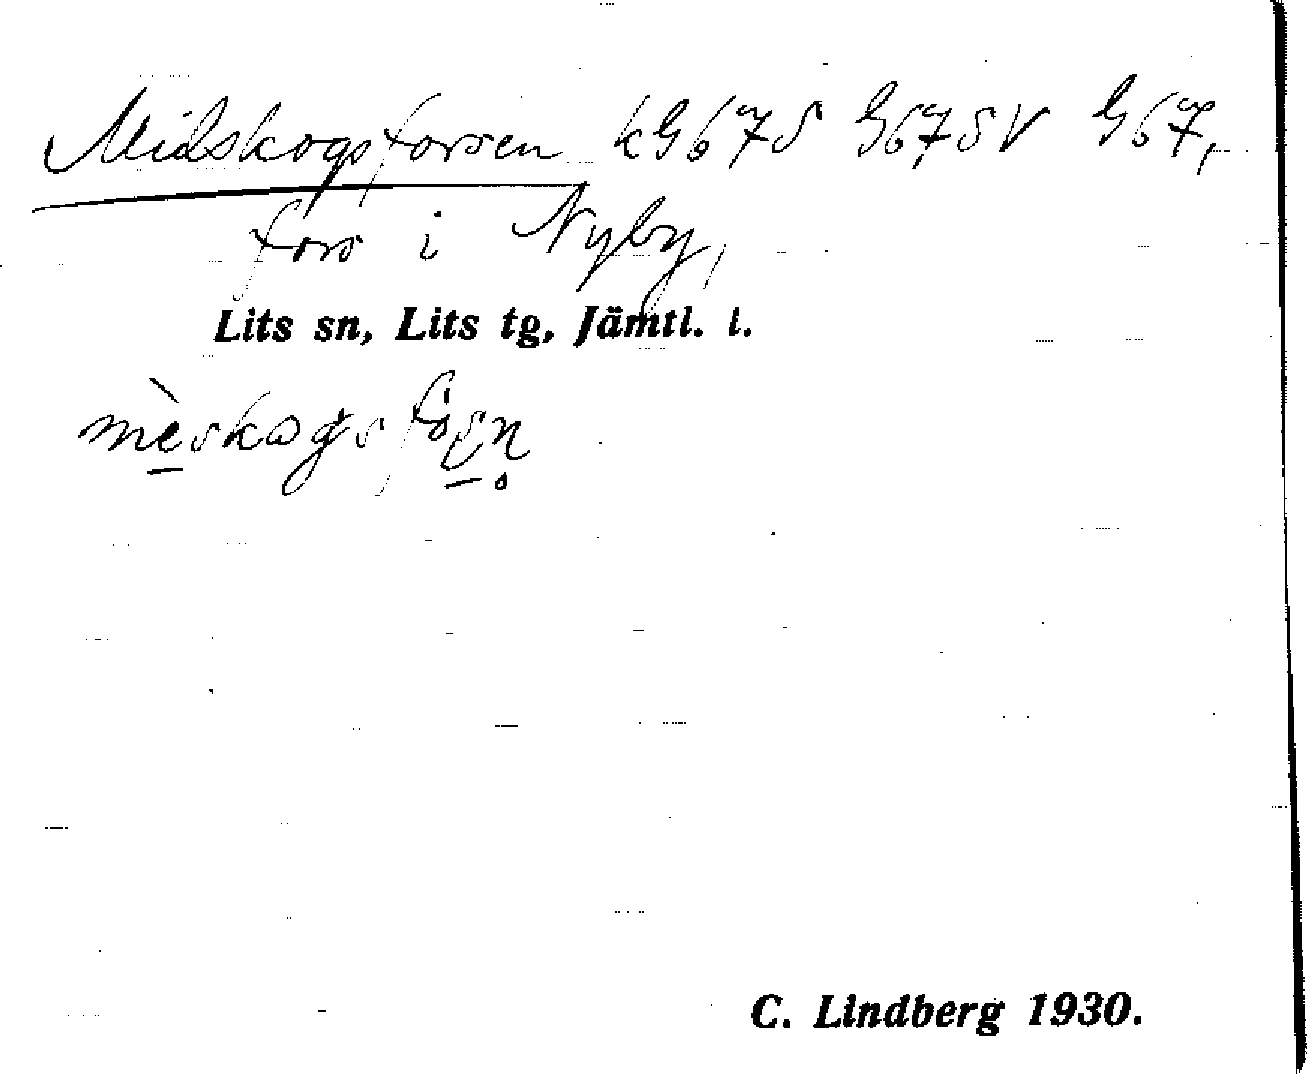 Midskogsforsen kG67S G67SV G67,
fors i Nyby,
Lits sn, Lits tg, Jämtl. l.
C. Lindberg 1930.